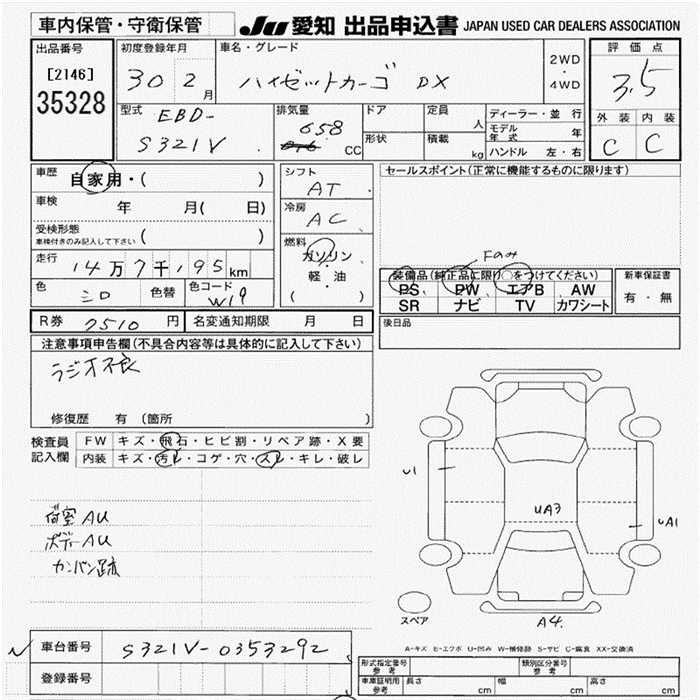 車内保管・守衛保管
JU 愛知 出品申込書 JAPAN USED CAR DEALERS ASSOCIATION
出品番号
[2146]
35328
初度登録年月
30 2月
車名・グレード
ハイゼットカーゴ DX
2WD
・
4WD
評価点
3.5
外装 内装
C C
型式 EBD-
S321V
排気量
658
CC
ドア
形状
定員 人
積載 kg
ディーラー・並行
モデル年式 年
ハンドル 左・右
車歴 自家用・( )
車検 年 月( 日)
受検形態
車検付きのみ記入して下さい ( )
走行 14万7千195km
色 シロ 色替 色コード W19
シフト AT
冷房 AC
燃料
ガソリン
・
軽・油
( )
セールスポイント(正常に機能するものに限ります)
Fのみ
装備品(純正品に限り○をつけてください)
PS PW エアB AW
SR ナビ TV カワシート
新車保証書
有・無
R券 7510円 名変通知期限 月 日
後日品
注意事項申告欄(不具合内容等は具体的に記入して下さい)
ラジオ不良
修復歴 有(箇所 )
検査員
記入欄
FW キズ・飛石・ヒビ割・リペア跡・X要
内装 キズ・汚レ・コゲ・穴・スレ・キレ・破レ
荷室AU
ボディーAU
カンバン跡
U1
UA3
UA1
A4
スペア
A-キズ E-エクボ U-凹み W-補修跡 S-サビ C-腐食 XX-交換済
車台番号 S321V-0353292
登録番号
形式指定番号 参考
類別区分番号 参考
車庫証明用 参考 長さ cm 幅 cm 高さ cm